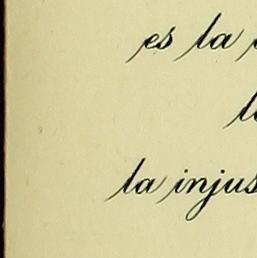 es la
la injus